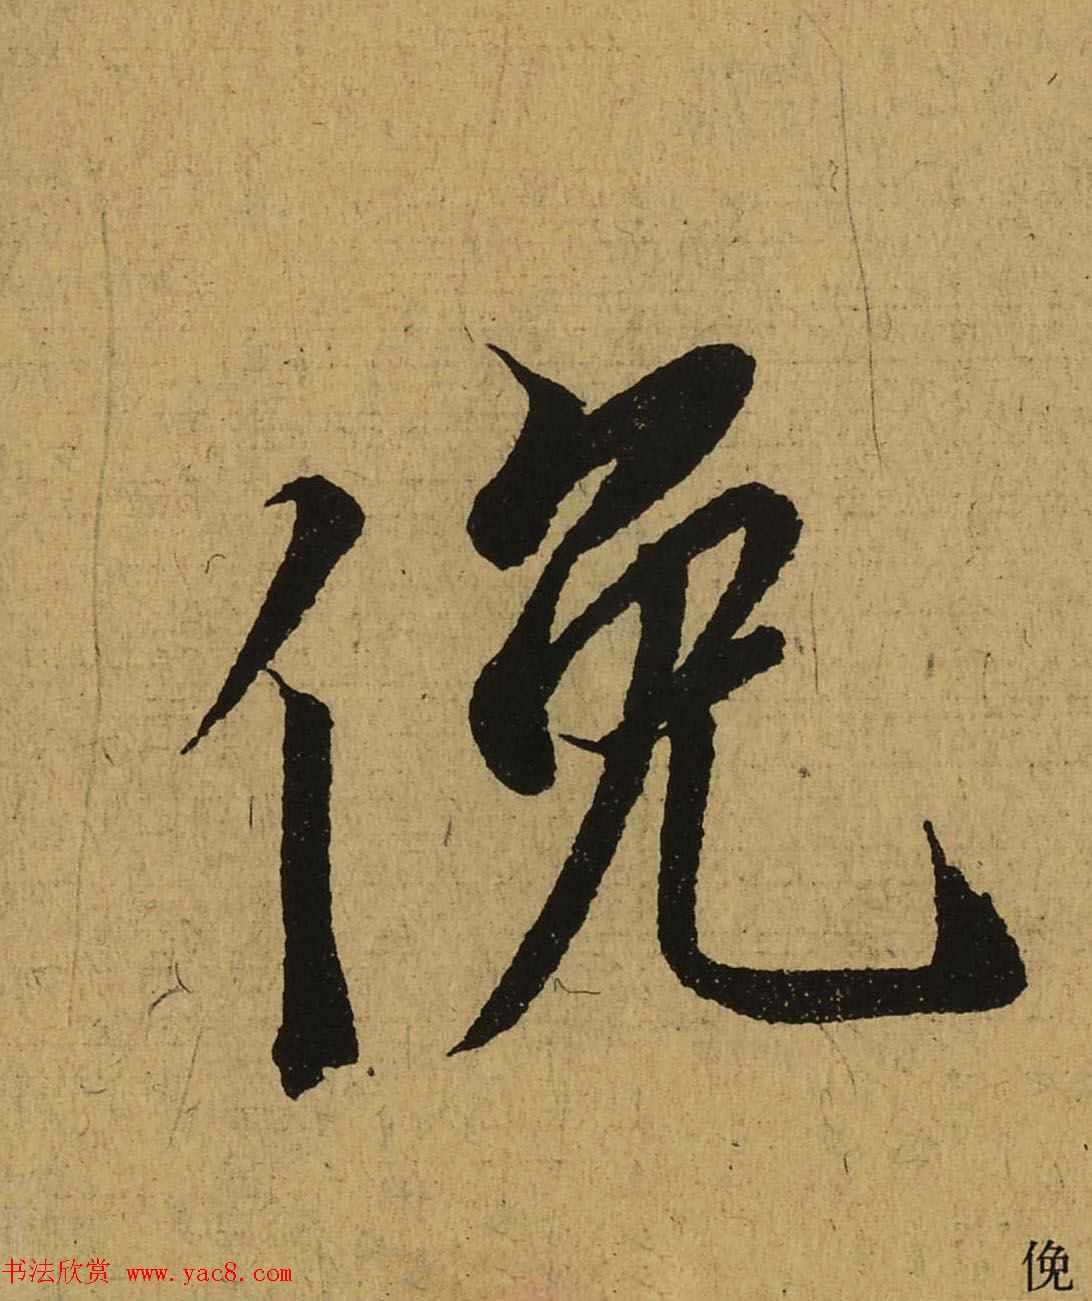 俛
书法欣赏 www.yac8.com
俛